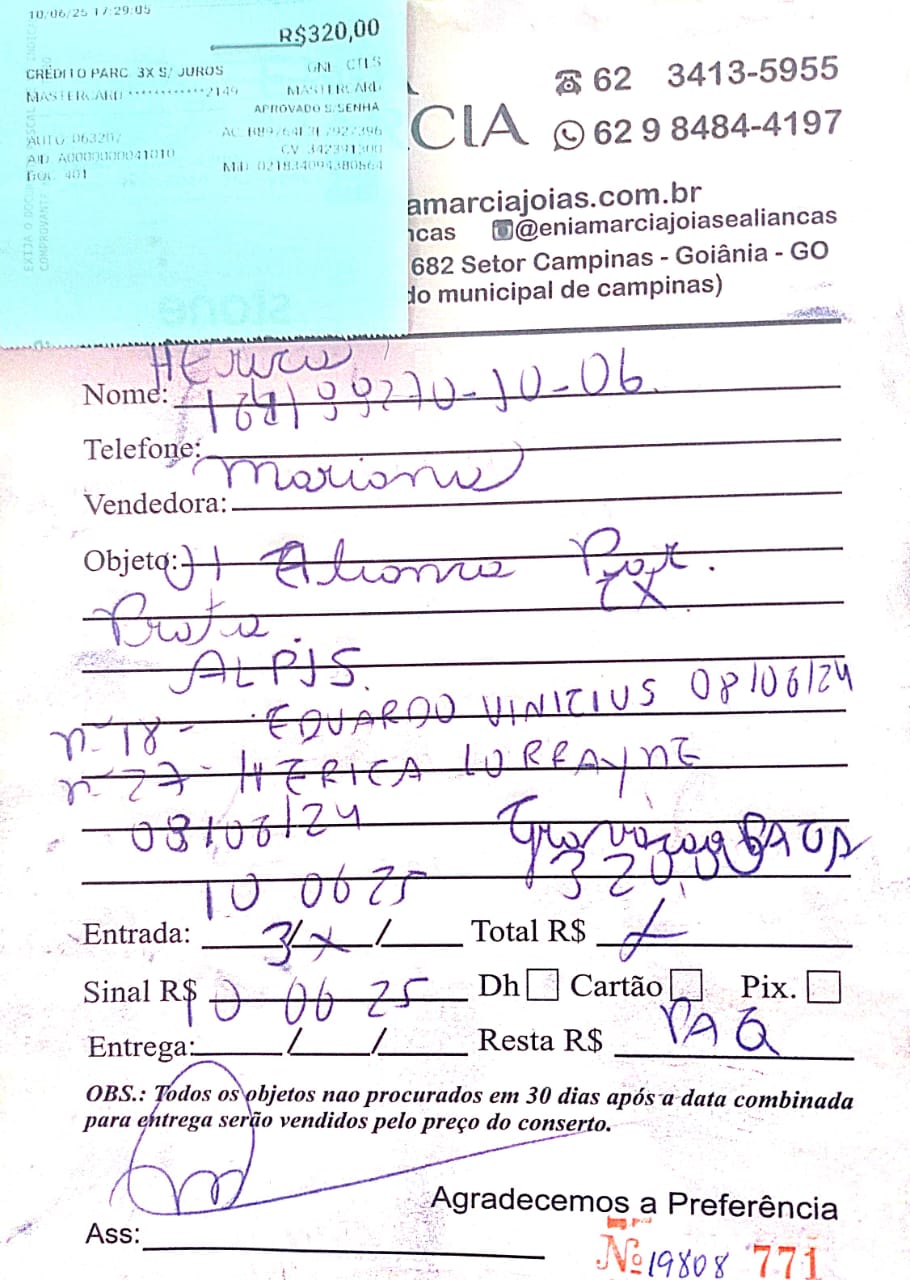 10/06/25 17:29:05
R$320,00
CRÉDITO PARC. 3X S/ JUROS
ONL CTLS
MASTERCARD ************2149
MASTERCARD
APROVADO S/SENHA
AUTO 063207
AID A0000000041010
CV 342391300
DOC 401
MID 021834094380864
CIA
62 3413-5955
62 9 8484-4197
amarciajoias.com.br
ncas @eniamarciajoiasealiancas
682 Setor Campinas - Goiânia - GO
do municipal de campinas)
Nome:
Telefone:
Mariana
Vendedora:
Objeto: 01 Aliança Par.
Prata.
ALPJS.
n-18- EDUARDO VINICIUS 08/06/24
n-27- HERICA LORRAYNE
08/06/24 Gravação PAGA
10 06 25 320,00
Entrada: 3/x/ Total R$
Sinal R$ 10 06 25 Dh Cartão Pix.
Entrega: / / Resta R$ PAG
OBS.: Todos os objetos nao procurados em 30 dias após a data combinada
para entrega serão vendidos pelo preço do conserto.
Agradecemos a Preferência
Ass:
Nº 19808 771